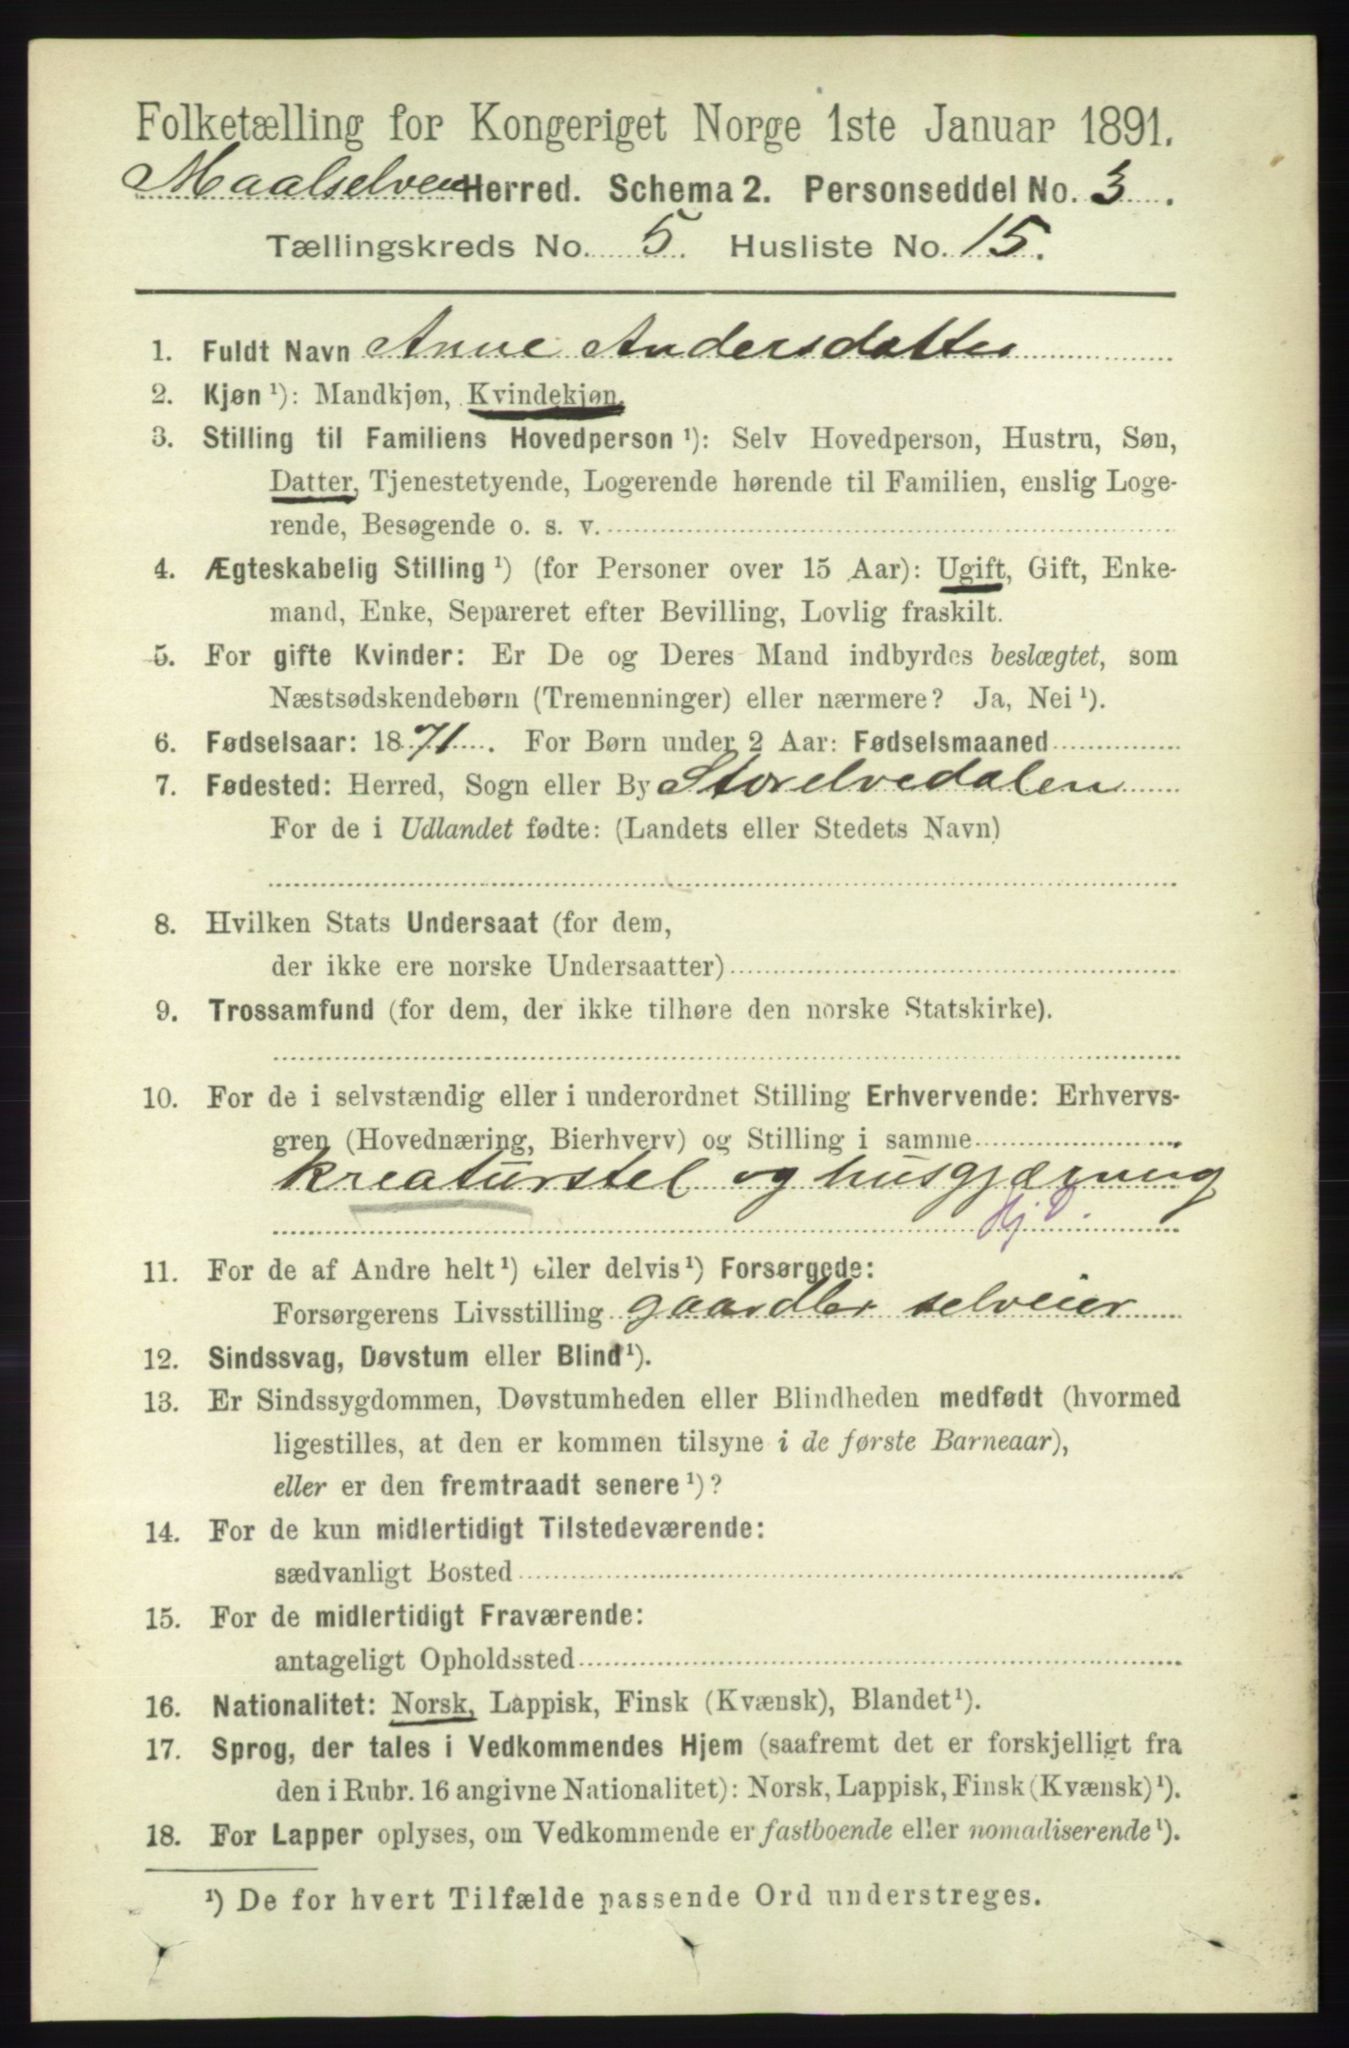 Folketælling for Kongeriget Norge 1ste Januar 1891.
Maalselven Herred. Schema 2. Personseddel No. 3.
Tællingskreds No. 5. Husliste No. 15.
1. Fuldt Navn Anne Andersdatter
2. Kjøn ¹): Mandkjøn, Kvindekjøn.
3. Stilling til Familiens Hovedperson ¹): Selv Hovedperson, Hustru, Søn,
Datter, Tjenestetyende, Logerende hørende til Familien, enslig Loge-
rende, Besøgende o. s. v.
4. Ægteskabelig Stilling ¹) (for Personer over 15 Aar): Ugift, Gift, Enke-
mand, Enke, Separeret efter Bevilling, Lovlig fraskilt.
5. For gifte Kvinder: Er De og Deres Mand indbyrdes beslægtet, som
Næstsødskendebørn (Tremenninger) eller nærmere? Ja, Nei ¹).
6. Fødselsaar: 1871. For Børn under 2 Aar: Fødselsmaaned
7. Fødested: Herred, Sogn eller By Storelvedalen
For de i Udlandet fødte: (Landets eller Stedets Navn)
8. Hvilken Stats Undersaat (for dem,
der ikke ere norske Undersaatter)
9. Trossamfund (for dem, der ikke tilhøre den norske Statskirke).
10. For de i selvstændig eller i underordnet Stilling Erhvervende: Erhvervs-
gren (Hovednæring, Bierhverv) og Stilling i samme
kreaturstel og husgjærning
Hj. D.
11. For de af Andre helt ¹) eller delvis ¹) Forsørgede:
Forsørgerens Livsstilling gaardbr selveier
12. Sindssvag, Døvstum eller Blind ¹).
13. Er Sindssygdommen, Døvstumheden eller Blindheden medfødt (hvormed
ligestilles, at den er kommen tilsyne i de første Barneaar),
eller er den fremtraadt senere ¹)?
14. For de kun midlertidigt Tilstedeværende:
sædvanligt Bosted
15. For de midlertidigt Fraværende:
antageligt Opholdssted
16. Nationalitet: Norsk, Lappisk, Finsk (Kvænsk), Blandet ¹).
17. Sprog, der tales i Vedkommendes Hjem (saafremt det er forskjelligt fra
den i Rubr. 16 angivne Nationalitet): Norsk, Lappisk, Finsk (Kvænsk) ¹).
18. For Lapper oplyses, om Vedkommende er fastboende eller nomadiserende ¹).
¹) De for hvert Tilfælde passende Ord understreges.